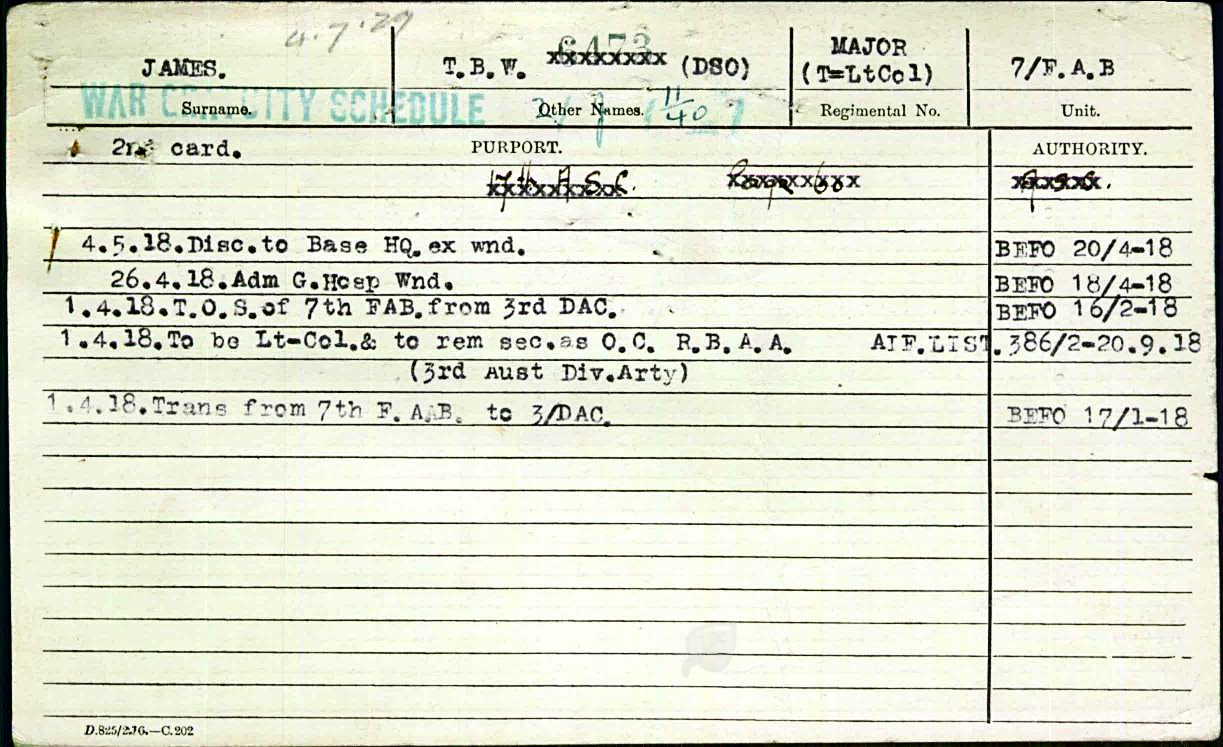 4.7.29
JAMES. T.B.W. 6473 xxxxxxxx (DSO) MAJOR (T=LtCol) 7/F.A.B
WAR GRATUITY SCHEDULE 11/40
Surname. Other Names. Regimental No. Unit.
2nd card. PURPORT. AUTHORITY.
4.5.18.Disc.to Base HQ.ex wnd. BEFO 20/4-18
26.4.18.Adm G.Hosp Wnd. BEFO 18/4-18
1.4.18.T.O.S.of 7th FAB.from 3rd DAC. BEFO 16/2-18
1.4.18.To be Lt-Col.& to rem sec.as O.C. R.B.A.A. AIF.LIST.386/2-20.9.18
(3rd Aust Div.Arty)
1.4.18.Trans from 7th F.AAB. to 3/DAC. BEFO 17/1-18
D.825/2.16.—C.202